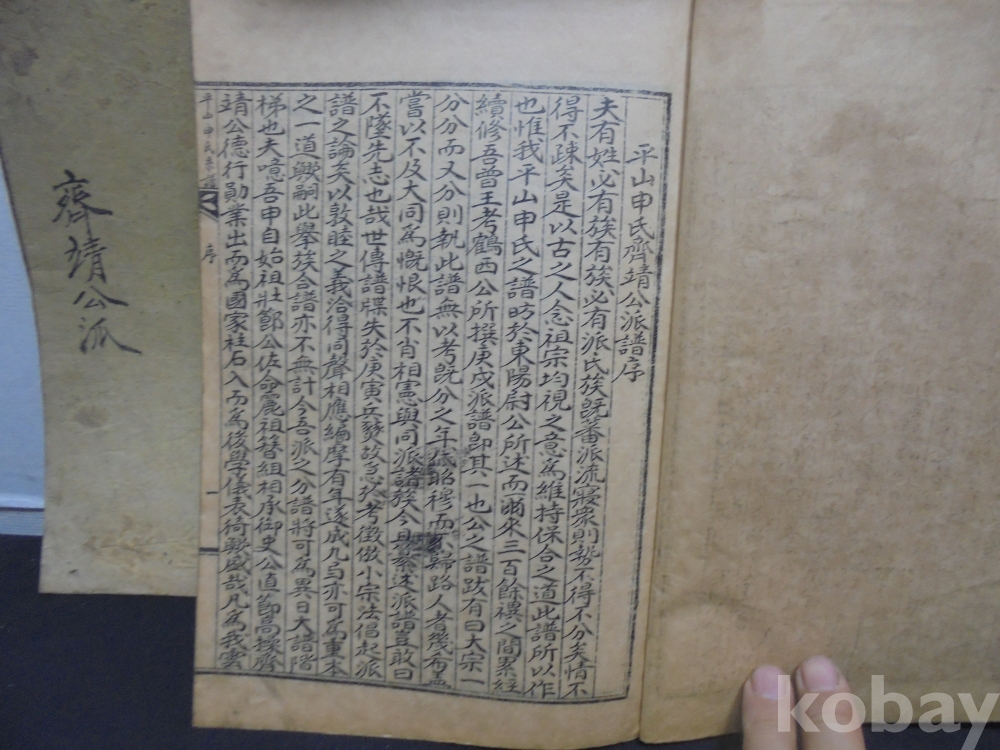 平山申氏齊靖公派譜序
夫有姓必有族有族必有派氏族旣蕃派流寢衆則勢不得不分矣情不
得不疎矣是以古之人念祖宗均視之意爲維持保合之道此譜所以作
也惟我平山申氏之譜昉於東陽尉公所述而爾來三百餘禩之間累經
續修吾曾王考鶴西公所撰庚戌派譜卽其一也公之譜跋有曰大宗一
分分而又分則執此譜無以考旣分之年代昭穆而不歸路人者幾希盖
嘗以不及大同爲慨恨也不肖相憲與同派諸族今且泝述派譜豈敢曰
不墜先志也哉世傳譜牒失於庚寅兵燹故忘於考徵倣小宗法倡起派
譜之論矣以敦睦之義洽得同聲相應編摩有年遂成凡亦可爲重本
之一道歟嗣此擧族合譜亦不無計今吾派之分譜將可爲異日大譜階
梯也夫噫吾申自始祖壯節公佐命麗祖簪組相承御史公直節高操齊
靖公德行勛業出而爲國家柱石入而爲後學儀表猗歟盛哉凡爲我雲
平山申氏系譜
序
一
齊靖公派
kobay